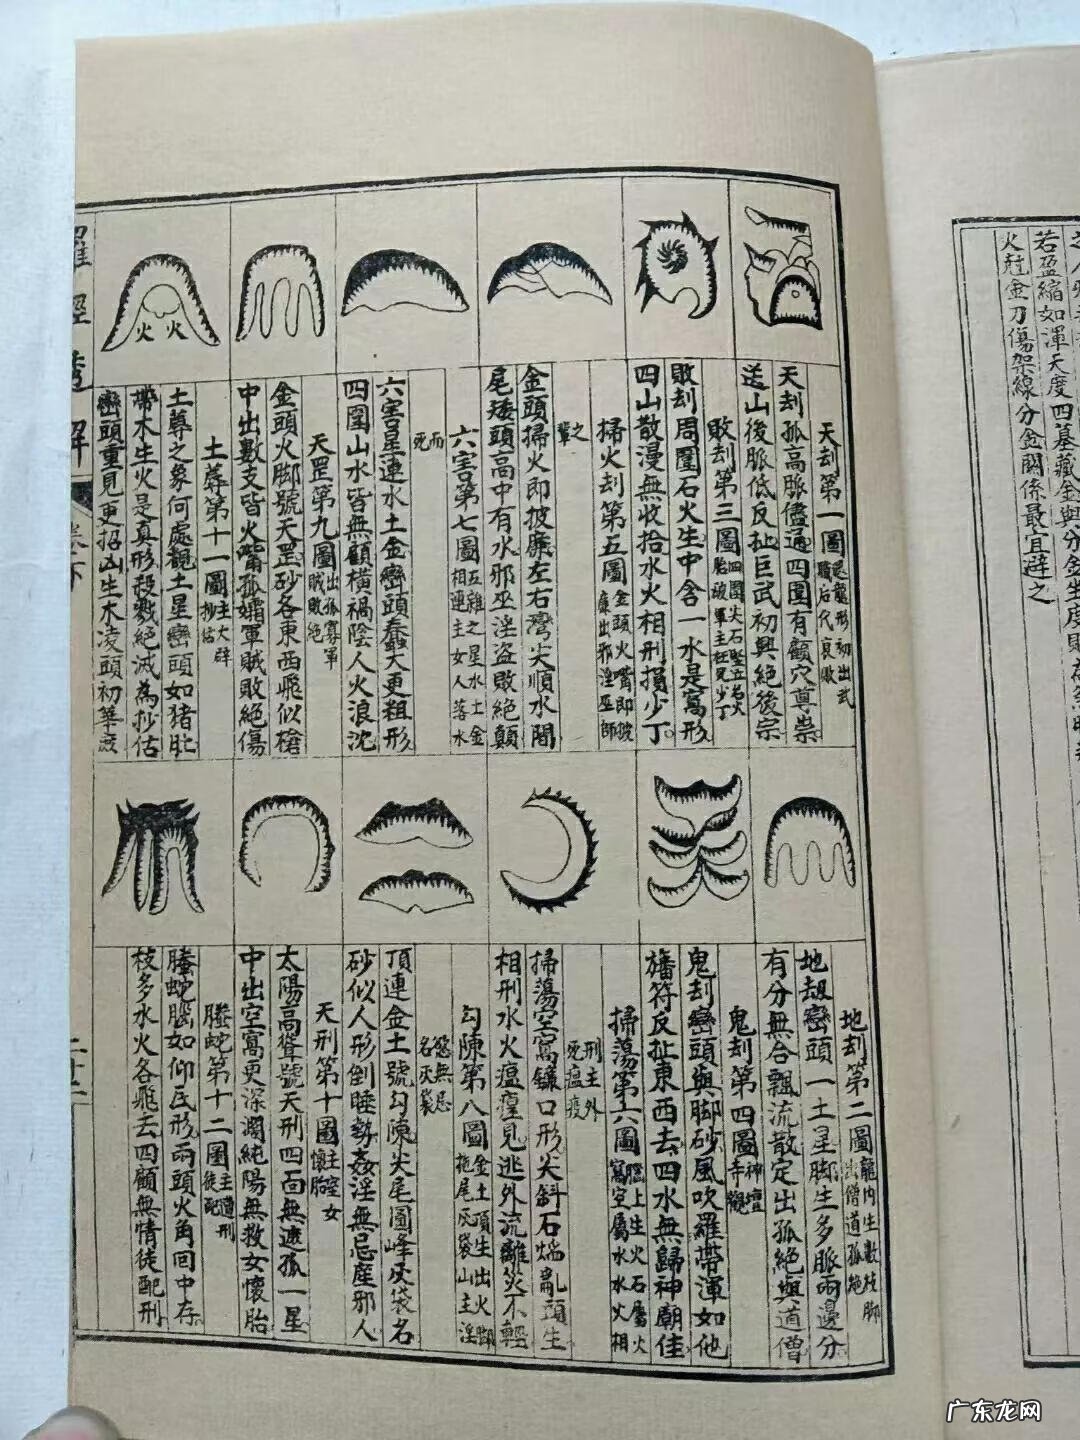 若盈縮如渾天度四墓藏金與分金生度
火尅金刀傷架線分金關係最宜避之
天刦第一圖
天刦孤高脈儘通四圍有顧穴尊祟
送山後脈低反扯巨武初興絕後宗
敗刦第三圖
敗刦周圍石火生中含一水是窩形
四山散漫無收拾水火相刑損少丁
掃火刦第五圖
之輩
金頭掃火即披廉左右灣尖順水間
尾矮頭高中有水邪巫淫盜敗絕顛
六害第七圖
五雜之星水土金
相連主女人落水
而死
六害星連水土金巒頭蠢大更粗形
四圍山水皆無顧橫禍陰人火浪沈
天罡第九圖
出孤寡軍
賊敗絕
金頭火脚號天罡砂各東西飛似槍
中出數支皆火嘴孤孀軍賊敗絕傷
土葬第十一圖
主大辟
抄估
土尊之象何處觀土星巒頭如猪肚
帶木生火是真形殺戮絕滅為抄估
巒頭重見更招凶生木凌頭初華
地刦第二圖
龍內生數枝脚
出僧道孤絕
地刼巒頭一土星脚生多脈兩邊分
有分無合飄流散定出孤絕與道僧
鬼刦第四圖
神壇
寺觀
鬼刦巒頭與脚砂風吹羅帶渾如他
旛符反扯東西去四水無歸神廟佳
掃蕩第六圖
腦上生火石屬火
窩空屬水水火相
刑主外
死瘟疫
掃蕩空窩鑲口形尖斜石焰亂頭生
相刑水火瘟㾮見逃外流離災不輕
勾陳第八圖
金土頂生出火脚
拖尾灰袋山主淫
慾無忌
名灰袋
頂連金土號勾陳尖尾圖峰灰袋名
砂似人形倒睡勢姦淫無忌產邪人
天刑第十圖
主室女
懷胎
太陽高聳號天刑四面無遮孤一星
中出空窩更深濶純陽無救女懷胎
螣蛇第十二圖
主遭刑
徒配
螣蛇腦如仰瓦形兩頭火角回中存
枝多水火各飛去四顧無情徒配刑
羅經透解
卷下
二廿二
广东龙网